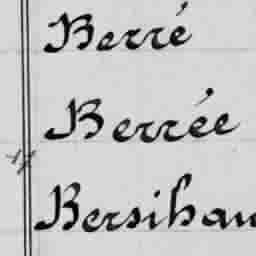 Berré
Berrée
Bersihan